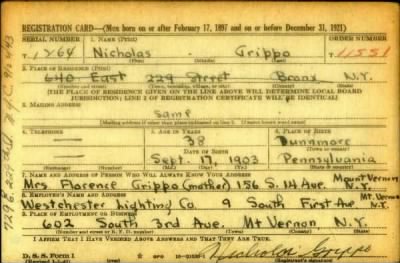 REGISTRATION CARD—(Men born on or after February 17, 1897 and on or before December 31, 1921)
SERIAL NUMBER 1. NAME (Print) ORDER NUMBER
T 1264 Nicholas . Grippo T11551
(First) (Middle) (Last)
2. PLACE OF RESIDENCE (Print)
640 East 229 Street Bronx N.Y.
(Number and street) (Town, township, village, or city) (County) (State)
[THE PLACE OF RESIDENCE GIVEN ON THE LINE ABOVE WILL DETERMINE LOCAL BOARD
JURISDICTION; LINE 2 OF REGISTRATION CERTIFICATE WILL BE IDENTICAL]
3. MAILING ADDRESS
Same
[Mailing address if other than place indicated on line 2. If same insert word same]
4. TELEPHONE 5. AGE IN YEARS 6. PLACE OF BIRTH
38 Dunnmore
DATE OF BIRTH (Town or county)
Sept. 17, 1903 Pennsylvania
(Exchange) (Number) (Mo.) (Day) (Yr.) (State or country)
7. NAME AND ADDRESS OF PERSON WHO WILL ALWAYS KNOW YOUR ADDRESS Mount Vernon
Mrs. Florence Grippo (mother) 156 S. 14 Ave. N.Y.
8. EMPLOYER'S NAME AND ADDRESS Mt. Vernon
Westchester Lighting Co. 9 South First Ave N.Y.
9. PLACE OF EMPLOYMENT OR BUSINESS
602 South 3rd Ave. Mt Vernon N.Y.
(Number and street or R. F. D. number) (Town) (County) (State)
I AFFIRM THAT I HAVE VERIFIED ABOVE ANSWERS AND THAT THEY ARE TRUE.
D. S. S. Form 1
Nicholas Grippo
(Registrant's signature)